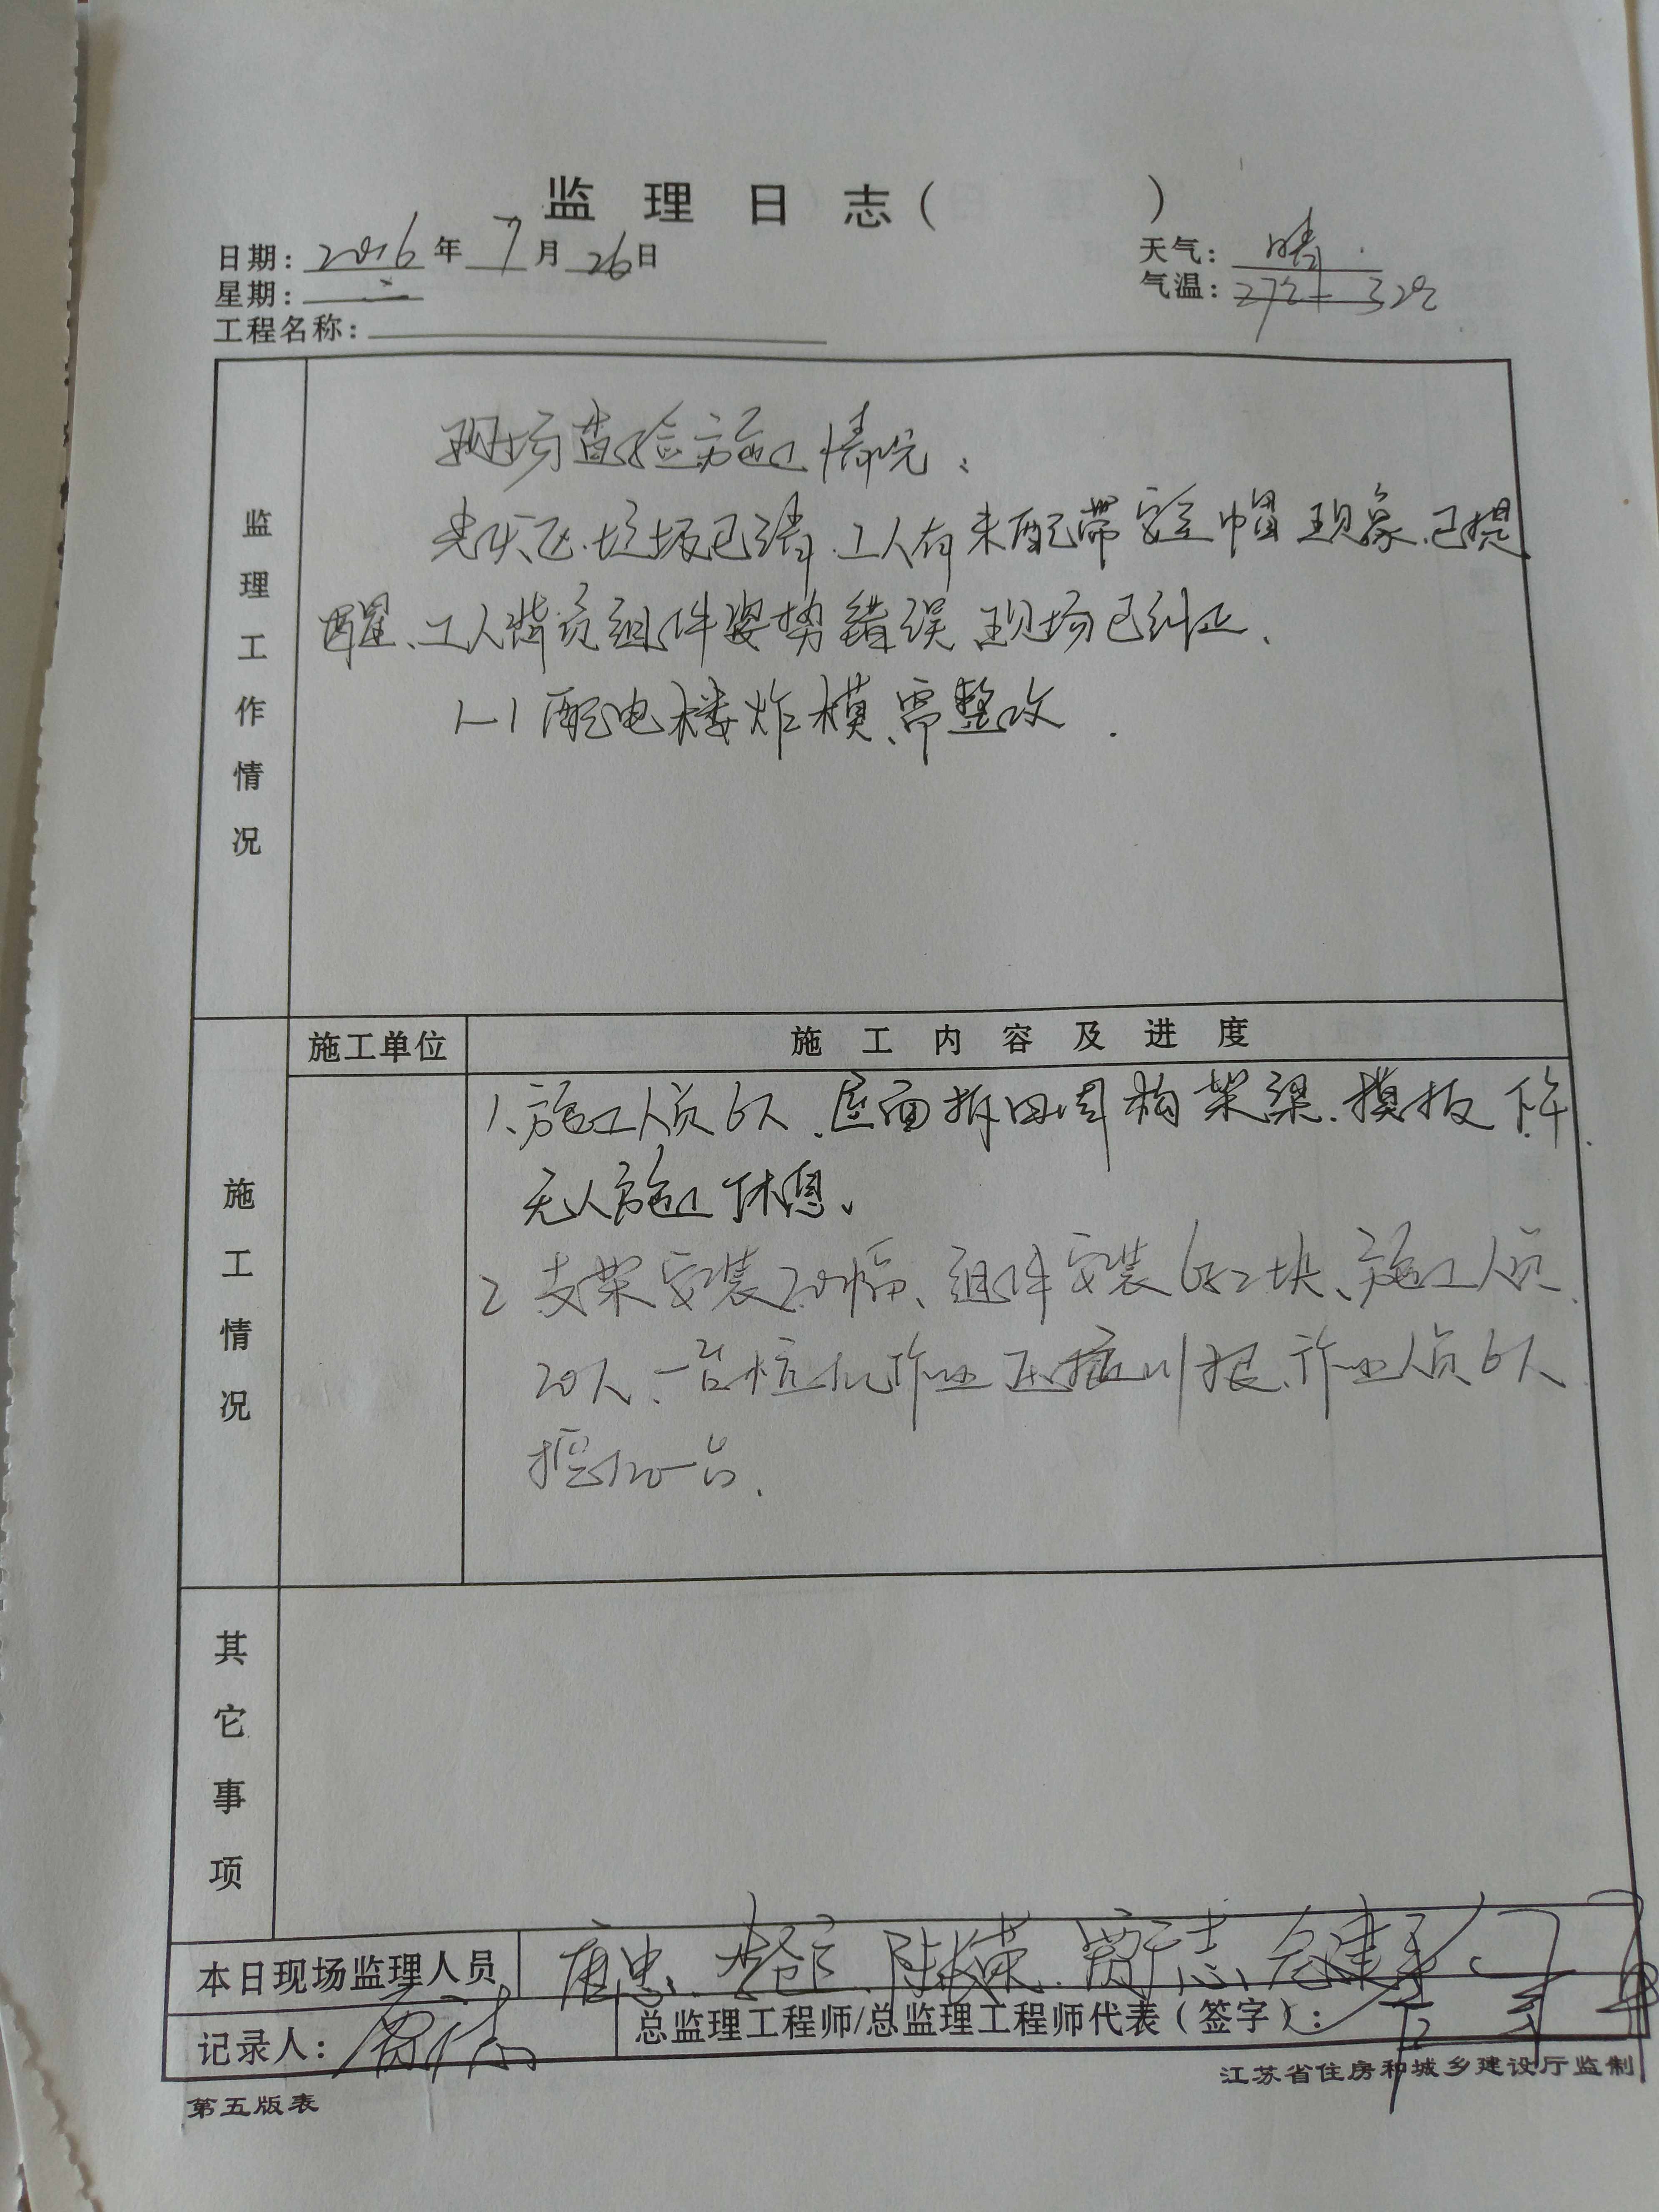 监理日志（ ）
日期：2016年7月26日
天气：晴
星期：二
气温：27℃-32℃
工程名称：
监理工作情况
现场查验施工情况：
光伏区垃圾已清、工人有未配带安全帽现象、已提
醒、工人背负组件姿势错误、现场已纠正、
1-1配电楼炸模、需整改.
施工单位
施工内容及进度
施工情况
1、施工人员6人、屋面拆四周构架梁、模板下午
无人施工休息、
2 支架安装20幅、组件安装612块、施工人员
20人、一台桩机作业压桩 根、作业人员6人
挖机一台.
其它事项
本日现场监理人员
记录人：
总监理工程师/总监理工程师代表（签字）：
第五版表
江苏省住房和城乡建设厅监制